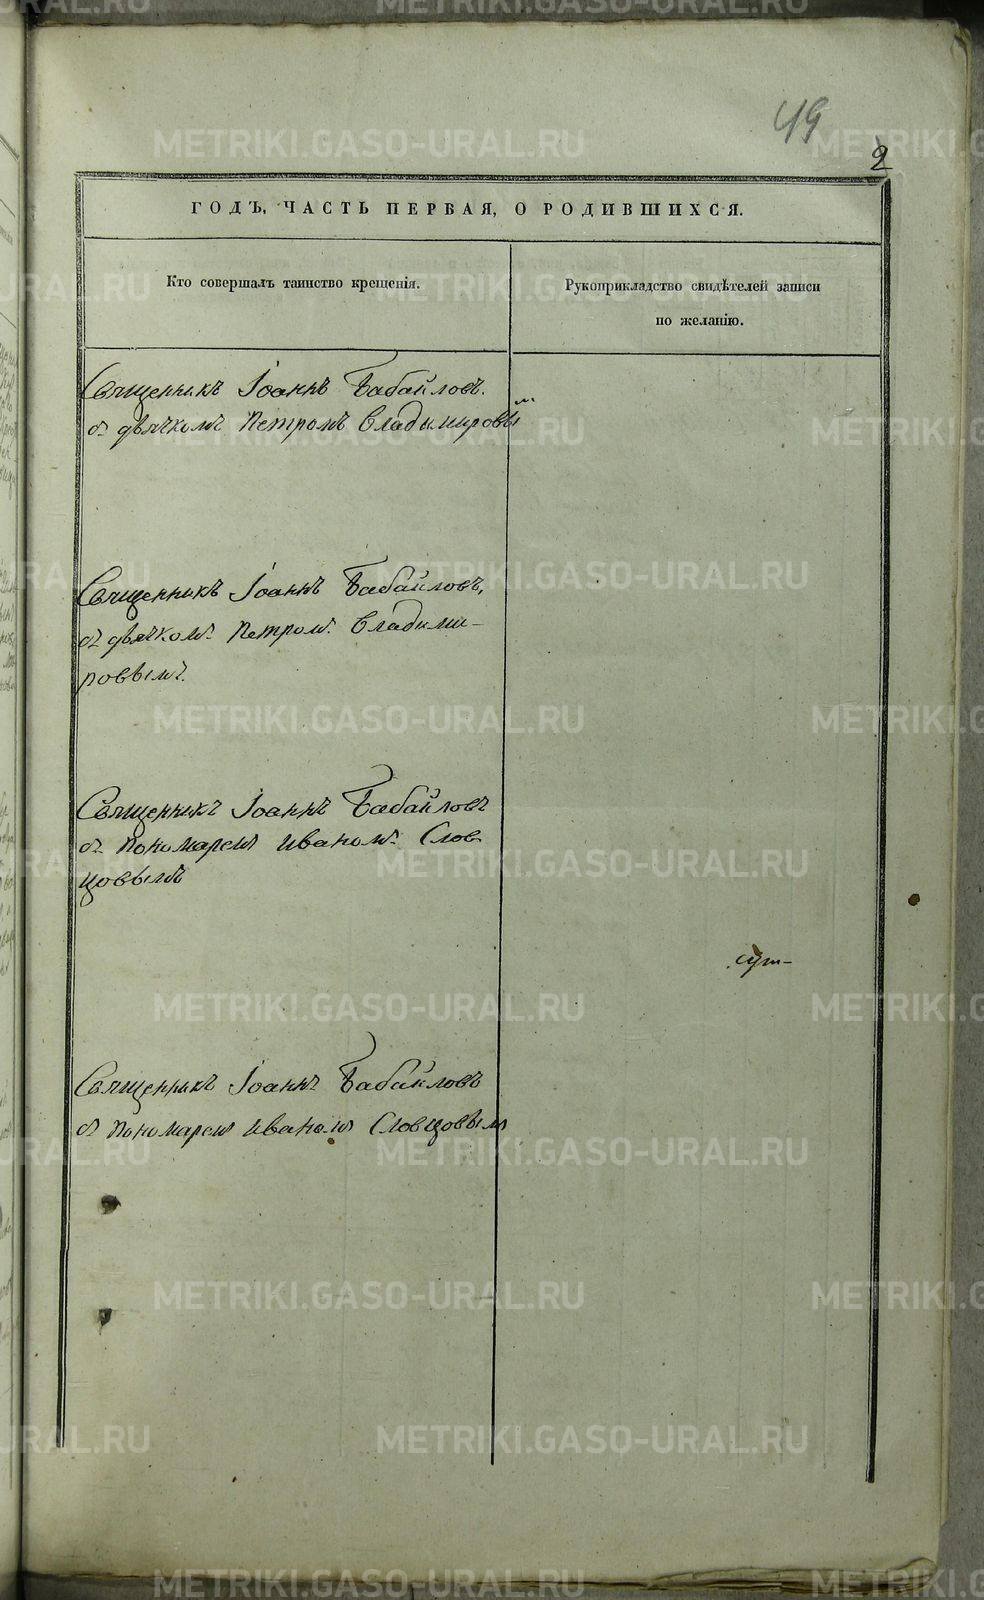 49
2
ГОДЪ, ЧАСТЬ ПЕРВАЯ, О РОДИВШИХСЯ.
Кто совершалъ таинство крещенія.
Рукоприкладство свидѣтелей записи
по желанію.
Священникъ Іоаннъ Бабайловъ.
съ дьячкомъ Петромъ Владимировым
Священникъ Іоаннъ Бабайловъ,
съ дьячкомъ Петромъ Владими-
ровымъ.
Священникъ Іоаннъ Бабайловъ
съ Пономаремъ Иваномъ Слов-
цовымъ
Священникъ Іоаннъ Бабайловъ
съ Пономаремъ Иваномъ Словцовым
METRIKI.GASO-URAL.RU